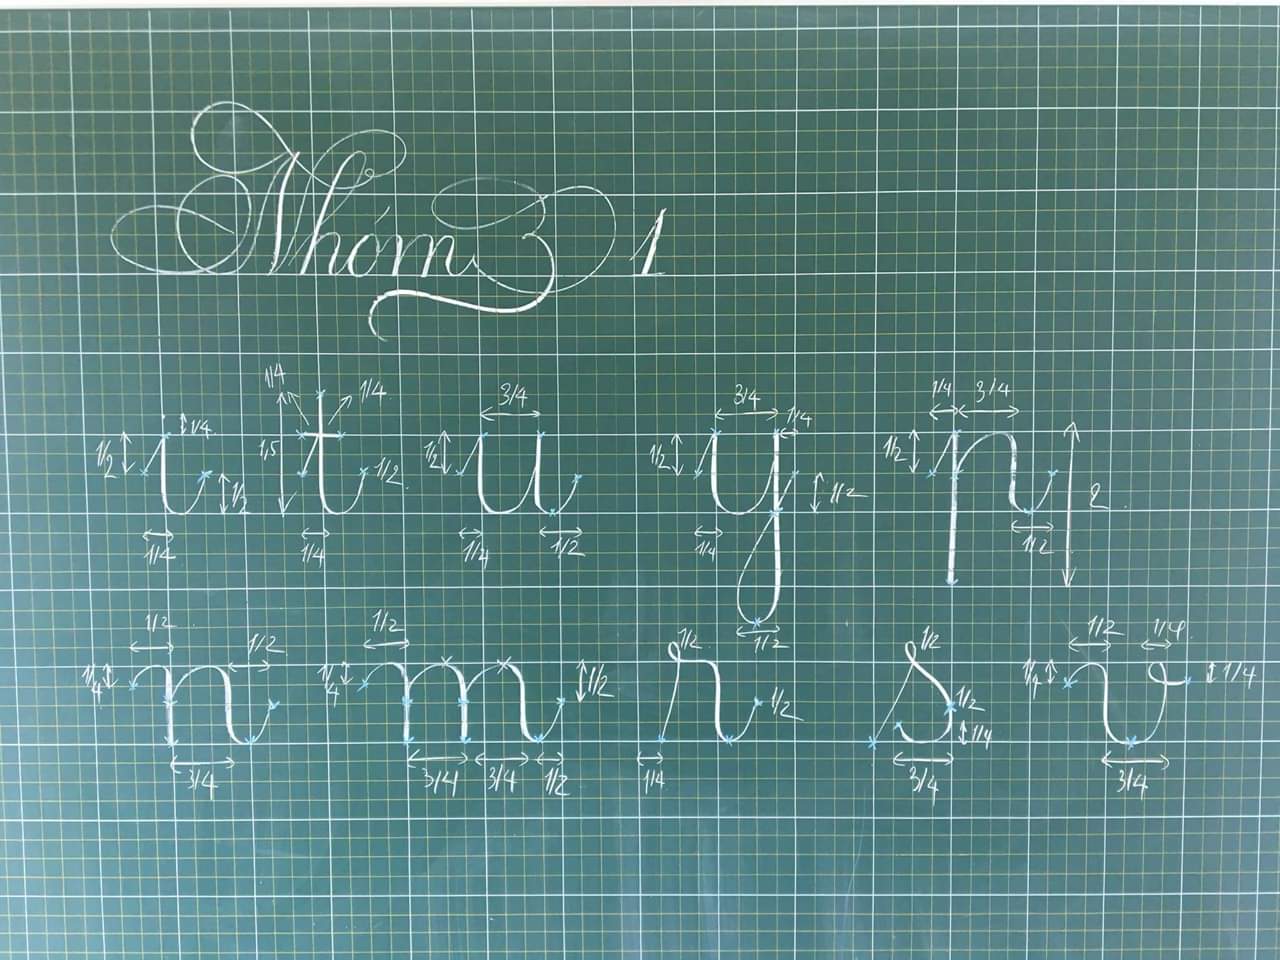 Nhóm 1
1/4 1/4 3/4 3/4 1/4 1/4 3/4
1/2 1/4 1,5 1/2 1/2 1/2 1/2 2
1/2 1/2
1/4 1/4 1/4 1/2 1/4 1/2 1/2
ı t u y p
1/2 1/2 1/2 1/2 1/2 1/2 1/4
1/4 1/4 1/2 1/2 1/2 1/4 1/4 1/4
3/4 3/4 3/4 1/2 1/4 3/4 3/4
n m r s v